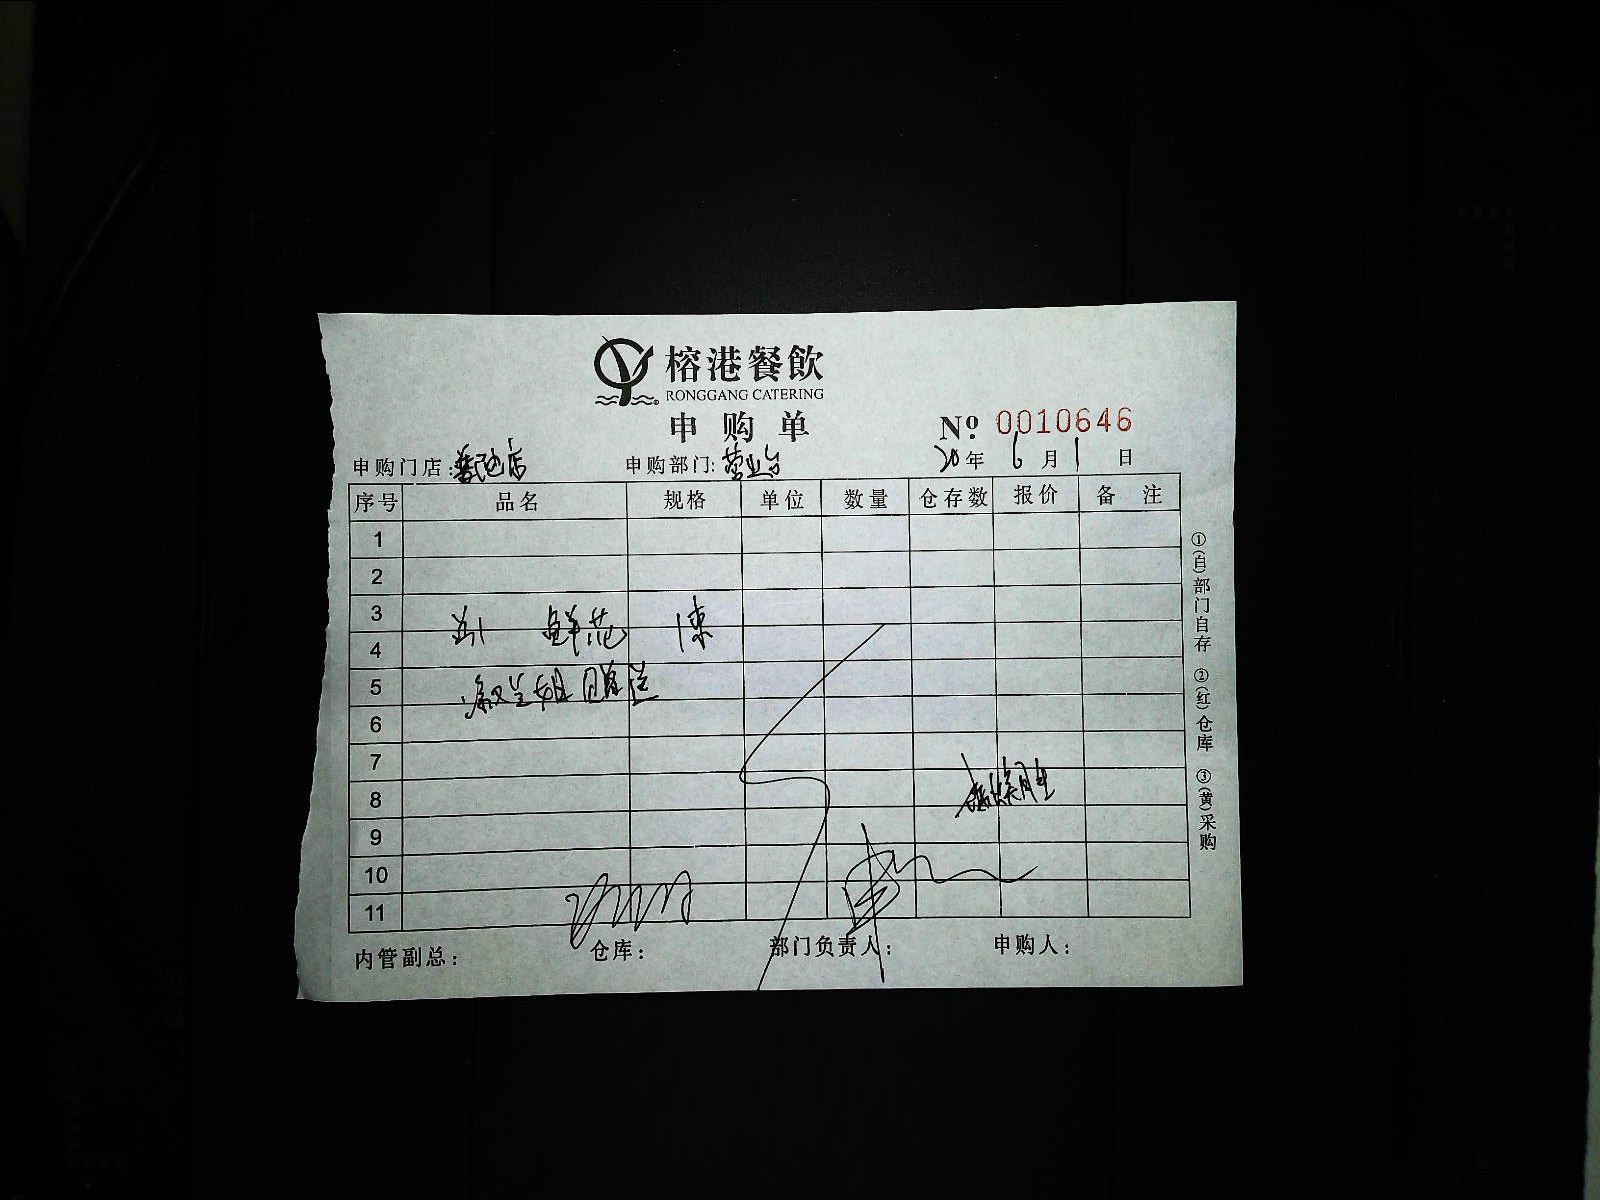 榕港餐飲
RONGGANG CATERING
申购单
№ 0010646
申购门店: 店 申购部门: 营业台 20年 6月 1日
序号 品名 规格 单位 数量 仓存数 报价 备注
1
2
3
鲜花 1束
4
5
6
7
8
9
10
11
内管副总: 仓库: 部门负责人: 申购人:
①(白)部门自存 ②(红)仓库 ③(黄)采购